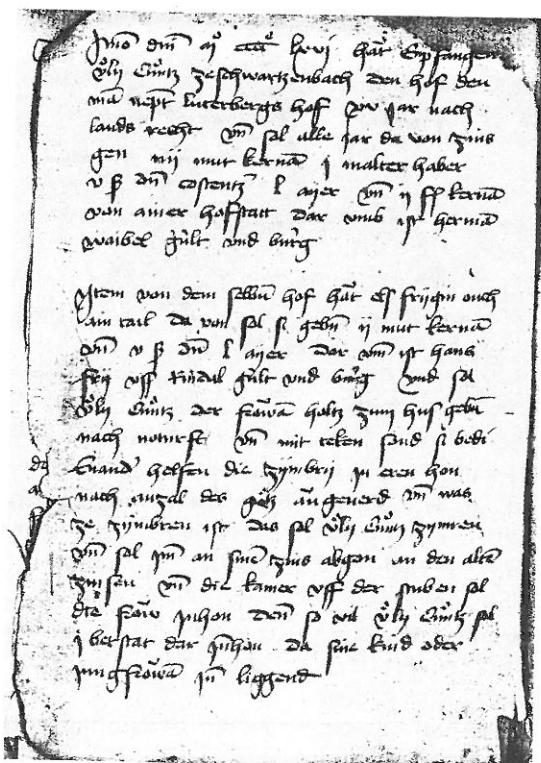 Anno dm̄ mº ccccº lxvi hat Enpfangen
Ůlij Cůntz ze schwartzenbach den hof den
mā nept luterbergs hof xv jar nach
lands recht vn̄ sol alle jar da von zins
gen mut kernā j malter haber
v ß dn̄ costentz̄ l ayer vn̄ ij fl kernā
von ainer hofstatt dar vmb ist hermā
waibel gult vnd burg

Item von dem selbn̄ hof hat els frijgin ouch
ain tail da von sol si gebn̄ ij mut kernā
vn̄ v ß dn̄ l ayer dar vm̄ ist hans
frij vff Rindal gult vnd burg vnd sol
Ůlij Cůntz der frowā holtz zum hus gebn̄
nach noturft vn̄ mit teken sond si bedi
helfen die zymbrij in eren hon
nach anzal des gotz an geuerd vn̄ was
ze zymbren ist das sol Ůlij Cůntz zymren
vn̄ sol im an sinē zins abgon an den altā
zinsen vn̄ die kamer vff der stuben sol
die frow inhon den̄ so vil Ůlij Cůntz sol
j betstat dar in̄hon da sine kind oder
jungfrowā in̄ liggend